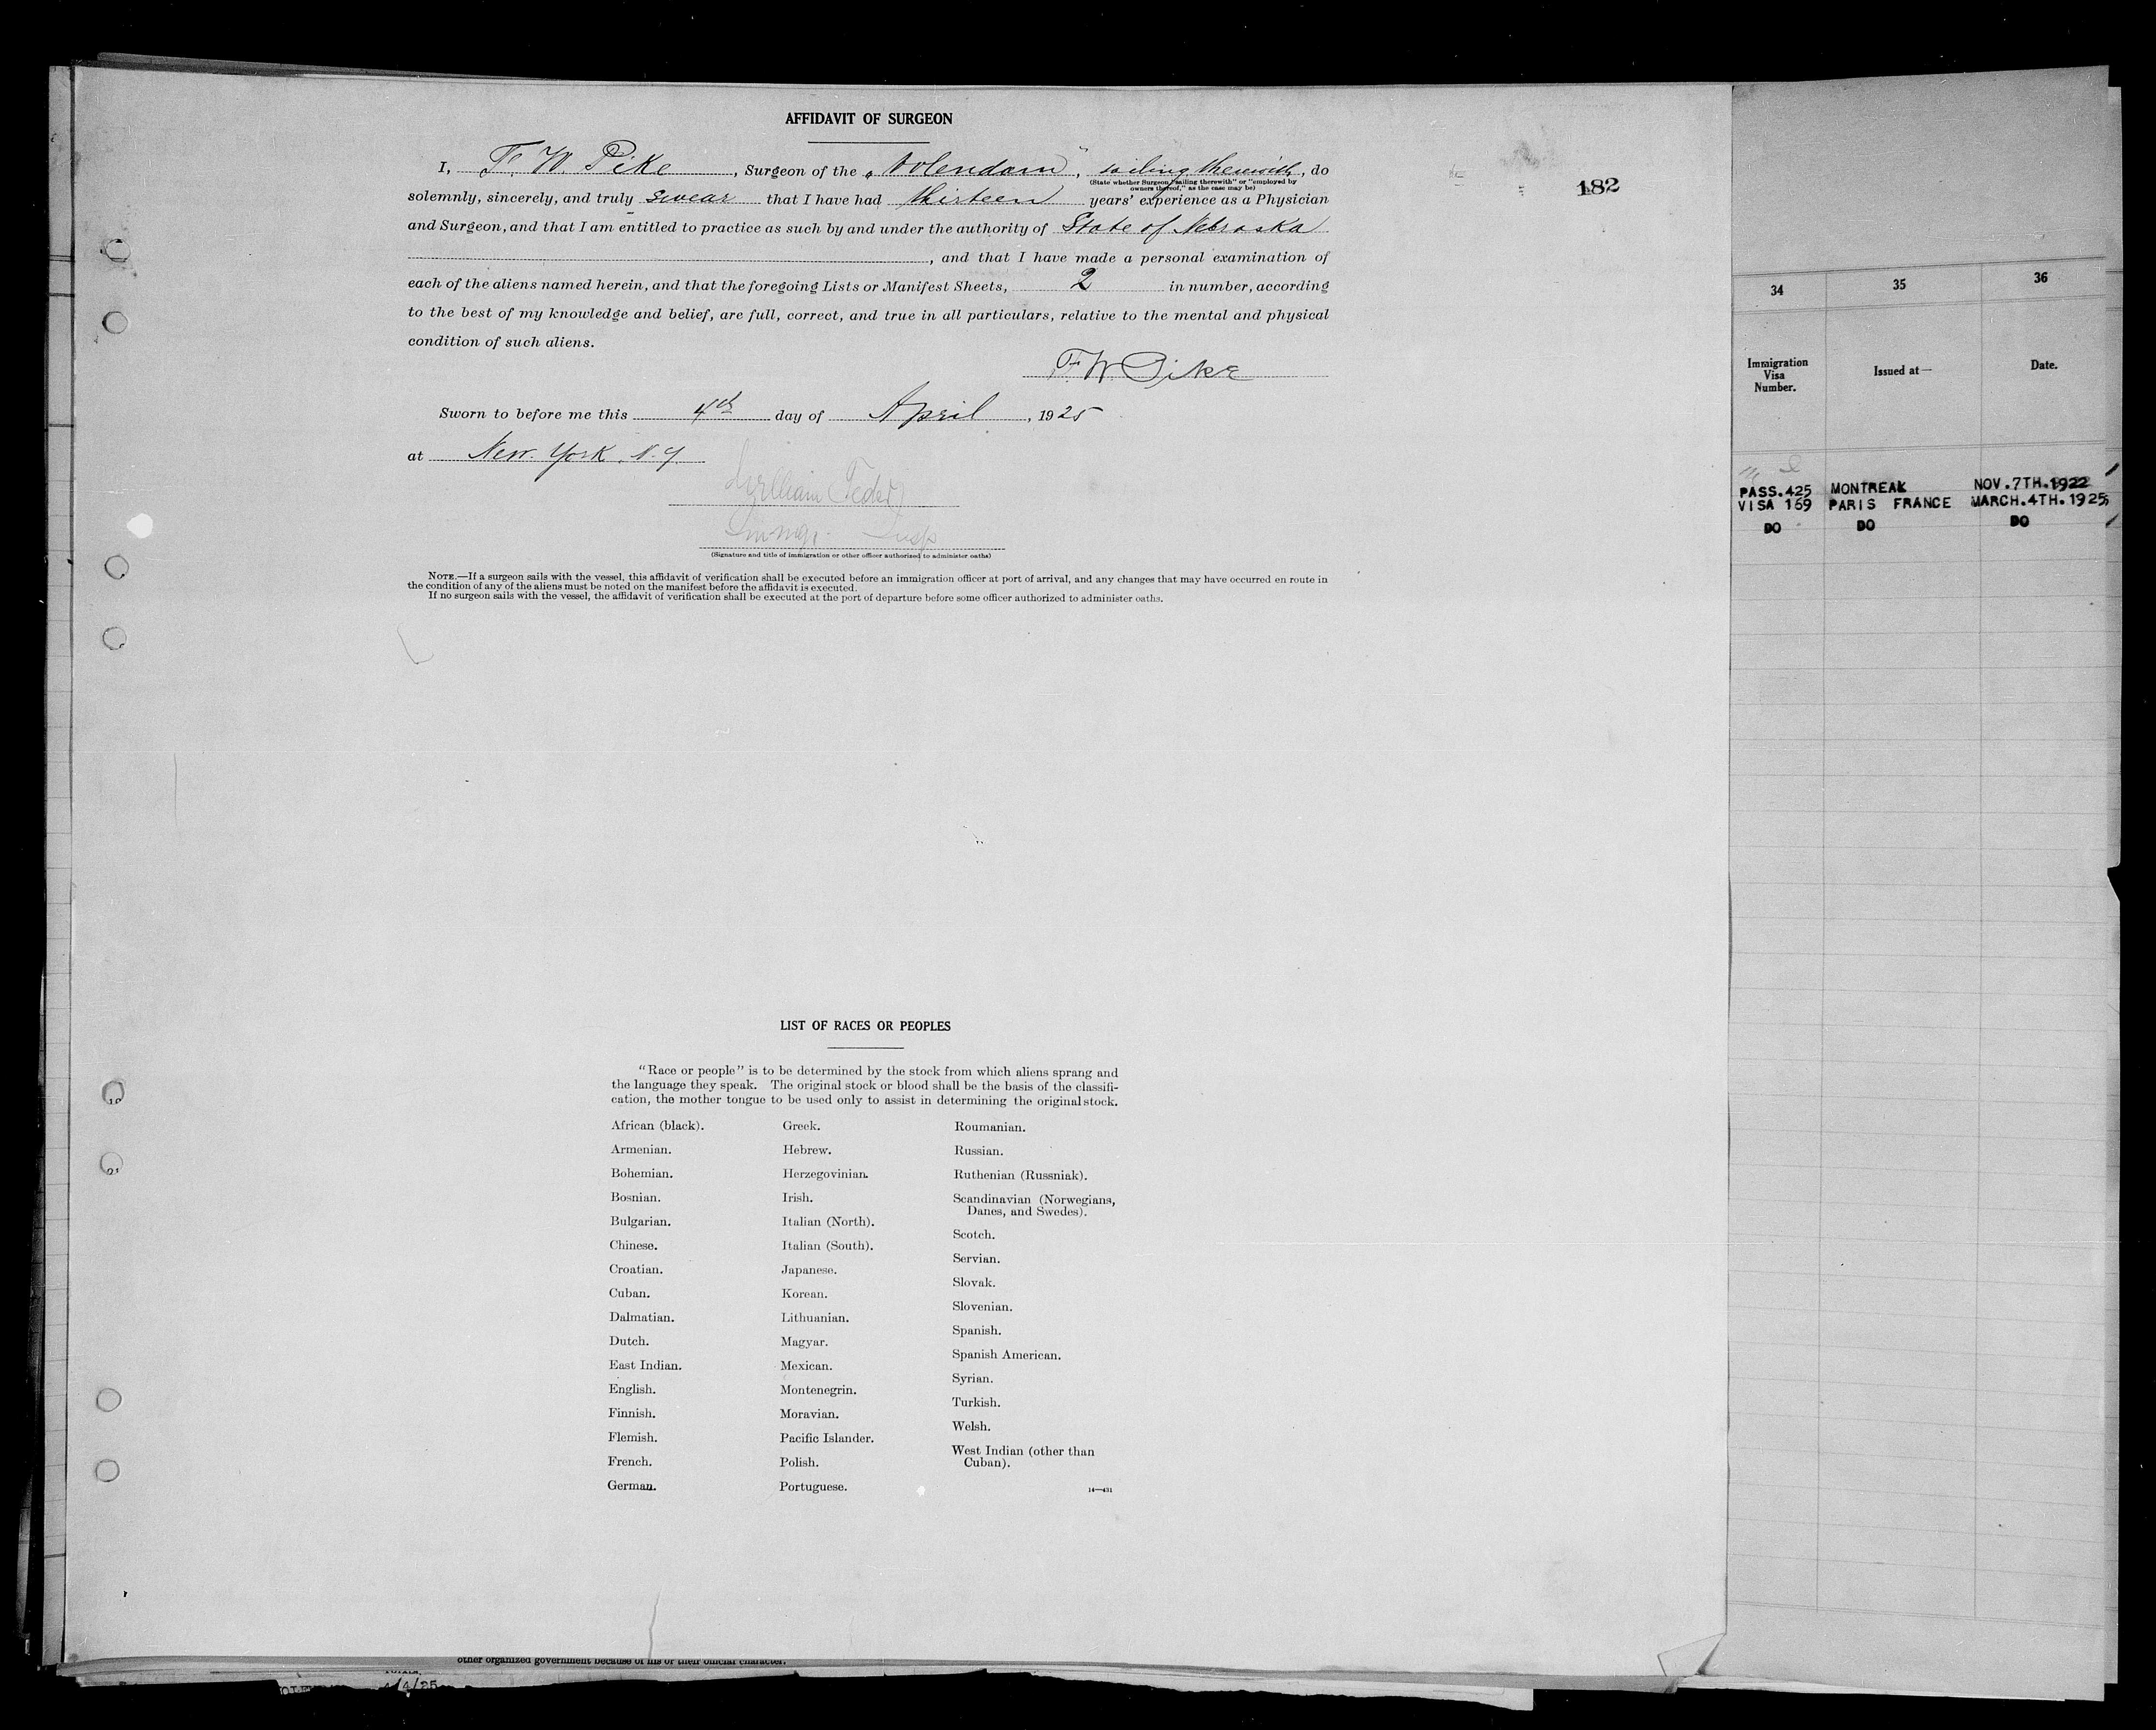 AFFIDAVIT OF SURGEON
I, F. W. Pike, Surgeon of the „Volendam", sailing therewith, do
(State whether Surgeon "sailing therewith" or "employed by
owners thereof," as the case may be)
182
solemnly, sincerely, and truly swear that I have had thirteen years' experience as a Physician
and Surgeon, and that I am entitled to practice as such by and under the authority of State of Nebraska
, and that I have made a personal examination of
each of the aliens named herein, and that the foregoing Lists or Manifest Sheets, 2 in number, according
to the best of my knowledge and belief, are full, correct, and true in all particulars, relative to the mental and physical
condition of such aliens.
F. W. Pike
Sworn to before me this 4th day of April, 1925
at New York. N.Y.
William Feder
Immgr. Insp
(Signature and title of immigration or other officer authorized to administer oaths)
NOTE.—If a surgeon sails with the vessel, this affidavit of verification shall be executed before an immigration officer at port of arrival, and any changes that may have occurred en route in
the condition of any of the aliens must be noted on the manifest before the affidavit is executed.
If no surgeon sails with the vessel, the affidavit of verification shall be executed at the port of departure before some officer authorized to administer oaths.
LIST OF RACES OR PEOPLES
"Race or people" is to be determined by the stock from which aliens sprang and
the language they speak. The original stock or blood shall be the basis of the classifi-
cation, the mother tongue to be used only to assist in determining the original stock.
African (black).
Armenian.
Bohemian.
Bosnian.
Bulgarian.
Chinese.
Croatian.
Cuban.
Dalmatian.
Dutch.
East Indian.
English.
Finnish.
Flemish.
French.
German.
Greek.
Hebrew.
Herzegovinian.
Irish.
Italian (North).
Italian (South).
Japanese.
Korean.
Lithuanian.
Magyar.
Mexican.
Montenegrin.
Moravian.
Pacific Islander.
Polish.
Portuguese.
Roumanian.
Russian.
Ruthenian (Russniak).
Scandinavian (Norwegians,
Danes, and Swedes).
Scotch.
Servian.
Slovak.
Slovenian.
Spanish.
Spanish American.
Syrian.
Turkish.
Welsh.
West Indian (other than
Cuban).
14—431
other organized government because of his or their official character.
4/4/25
34 35 36
Immigration
Visa
Number.
Issued at—
Date.
PASS.425 MONTREAL NOV.7TH.1922
VISA 169 PARIS FRANCE MARCH.4TH.1925
DO DO DO